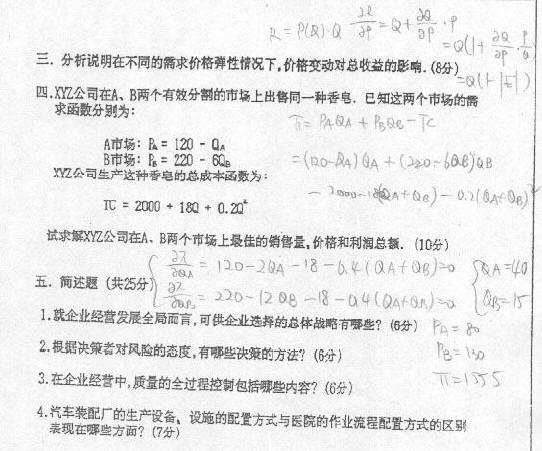 R = P(Q)·Q  ∂R/∂P = Q + ∂Q/∂P · P
= Q(1 + ∂Q/∂P · P/Q)
三. 分析说明在不同的需求价格弹性情况下,价格变动对总收益的影响.(8分)
= Q(1-|E|)
四. XYZ公司在A、B两个有效分割的市场上出售同一种香皂. 已知这两个市场的需
求函数分别为:
π = PAQA + PBQB - TC
A市场: PA = 120 - QA
B市场: PB = 220 - 6QB
= (120-QA) QA + (220-6QB) QB
XYZ公司生产这种香皂的总成本函数为:
- 2000 - 18(QA+QB) - 0.2(QA+QB)²
TC = 2000 + 18Q + 0.2Q²
试求解XYZ公司在A、B两个市场上最佳的销售量,价格和利润总额. (10分)
∂π/∂QA = 120-2QA-18-0.4(QA+QB)=0
QA=40
五. 简述题 (共25分)
∂π/∂QB = 220-12QB-18-0.4(QA+QB)=0
QB=15
1.就企业经营发展全局而言,可供企业选择的总体战略有哪些? (6分)
PA = 80
2.根据决策者对风险的态度,有哪些决策的方法? (6分)
PB = 130
3.在企业经营中,质量的全过程控制包括哪些内容? (6分)
π = 1555
4.汽车装配厂的生产设备、设施的配置方式与医院的作业流程配置方式的区别
表现在哪些方面? (7分)